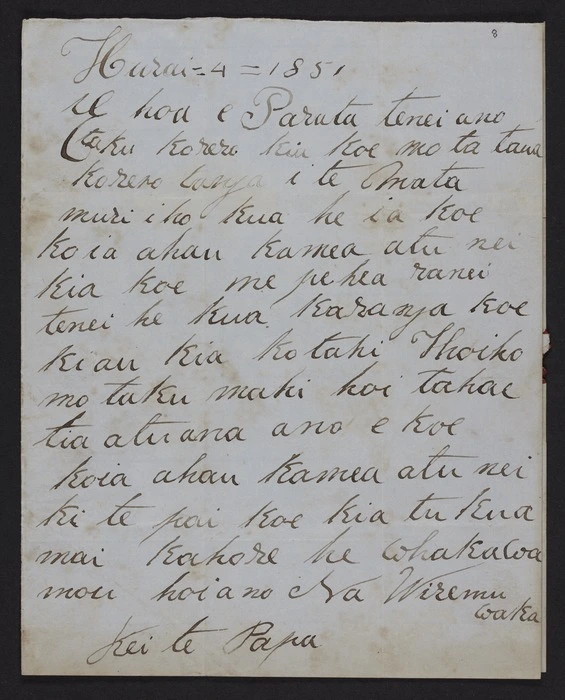 8
Hurai = 4 = 1851
E hoa e Paruta tenei ano
taku korero kia koe mo ta taua
korero tanga i te Mata
muri iho kua he ia koe
koia ahau kamea atu nei
kia koe me pehea ranei
tenei he kua karanga koe
kiau kia kotahi Hoiho
mo taku mahi hoi tahae
tia atuana ano e koe
koia ahau kamea atu nei
ki te pai koe kia tukua
mai kahore he whakawa
mou hoiano Na Wiremu
waka
Kei te Papa